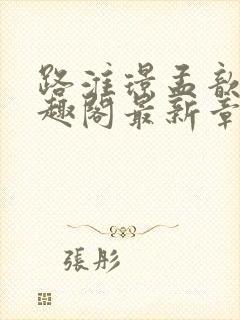 路淮璟孟歆
趣阁最新章
張彤